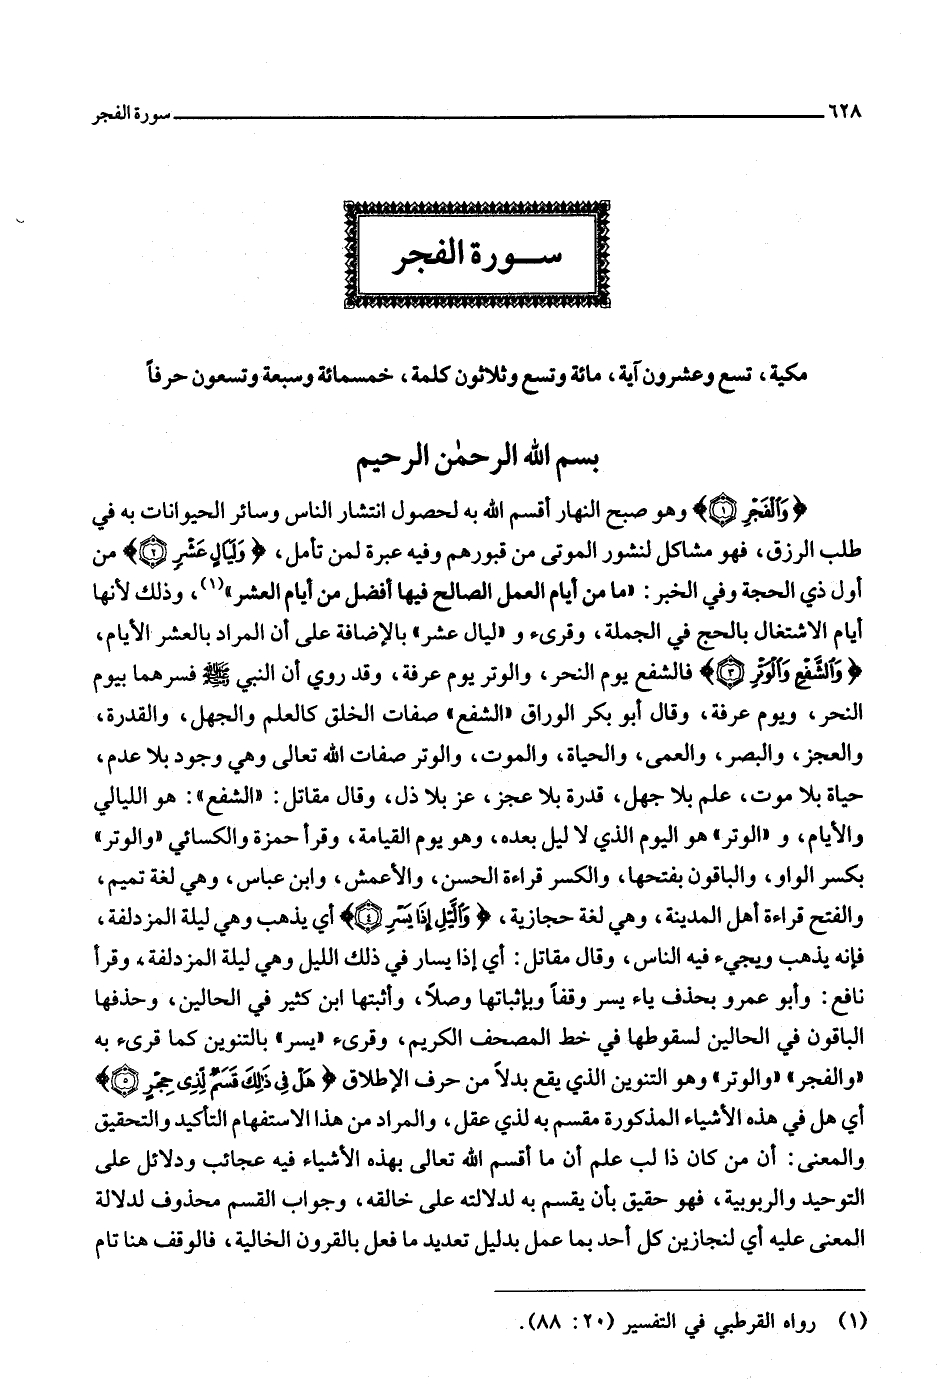 ٦٢٨ سورة الفجر
سورة الفجر
مكية، تسع وعشرون آية، مائة وتسع وثلاثون كلمة، خمسمائة وسبعة وتسعون حرفاً
بسم الله الرحمٰن الرحيم
﴿وَٱلْفَجْرِ ١﴾ وهو صبح النهار أقسم الله به لحصول انتشار الناس وسائر الحيوانات به في
طلب الرزق، فهو مشاكل لنشور الموتى من قبورهم وفيه عبرة لمن تأمل، ﴿وَلَيَالٍ عَشْرٍ ٢﴾ من
أول ذي الحجة وفي الخبر: «ما من أيام العمل الصالح فيها أفضل من أيام العشر»(١)، وذلك لأنها
أيام الاشتغال بالحج في الجملة، وقرىء و «ليال عشر» بالإضافة على أن المراد بالعشر الأيام،
﴿وَٱلشَّفْعِ وَٱلْوَتْرِ ٣﴾ فالشفع يوم النحر، والوتر يوم عرفة، وقد روي أن النبي ﷺ فسرهما بيوم
النحر، ويوم عرفة، وقال أبو بكر الوراق «الشفع» صفات الخلق كالعلم والجهل، والقدرة،
والعجز، والبصر، والعمى، والحياة، والموت، والوتر صفات الله تعالى وهي وجود بلا عدم،
حياة بلا موت، علم بلا جهل، قدرة بلا عجز، عز بلا ذل، وقال مقاتل: «الشفع»: هو الليالي
والأيام، و «الوتر» هو اليوم الذي لا ليل بعده، وهو يوم القيامة، وقرأ حمزة والكسائي «والوتر»
بكسر الواو، والباقون بفتحها، والكسر قراءة الحسن، والأعمش، وابن عباس، وهي لغة تميم،
والفتح قراءة أهل المدينة، وهي لغة حجازية، ﴿وَٱلَّيْلِ إِذَا يَسْرِ ٤﴾ أي يذهب وهي ليلة المزدلفة،
فإنه يذهب ويجيء فيه الناس، وقال مقاتل: أي إذا يسار في ذلك الليل وهي ليلة المزدلفة، وقرأ
نافع: وأبو عمرو بحذف ياء يسر وقفاً وبإثباتها وصلاً، وأثبتها ابن كثير في الحالين، وحذفها
الباقون في الحالين لسقوطها في خط المصحف الكريم، وقرىء «يسر» بالتنوين كما قرىء به
«والفجر» «والوتر» وهو التنوين الذي يقع بدلاً من حرف الإطلاق ﴿هَلْ فِى ذَٰلِكَ قَسَمٌ لِّذِى حِجْرٍ ٥﴾
أي هل في هذه الأشياء المذكورة مقسم به لذي عقل، والمراد من هذا الاستفهام التأكيد والتحقيق
والمعنى: أن من كان ذا لب علم أن ما أقسم الله تعالى بهذه الأشياء فيه عجائب ودلائل على
التوحيد والربوبية، فهو حقيق بأن يقسم به لدلالته على خالقه، وجواب القسم محذوف لدلالة
المعنى عليه أي لنجازين كل أحد بما عمل بدليل تعديد ما فعل بالقرون الخالية، فالوقف هنا تام
(١) رواه القرطبي في التفسير (٢٠: ٨٨).